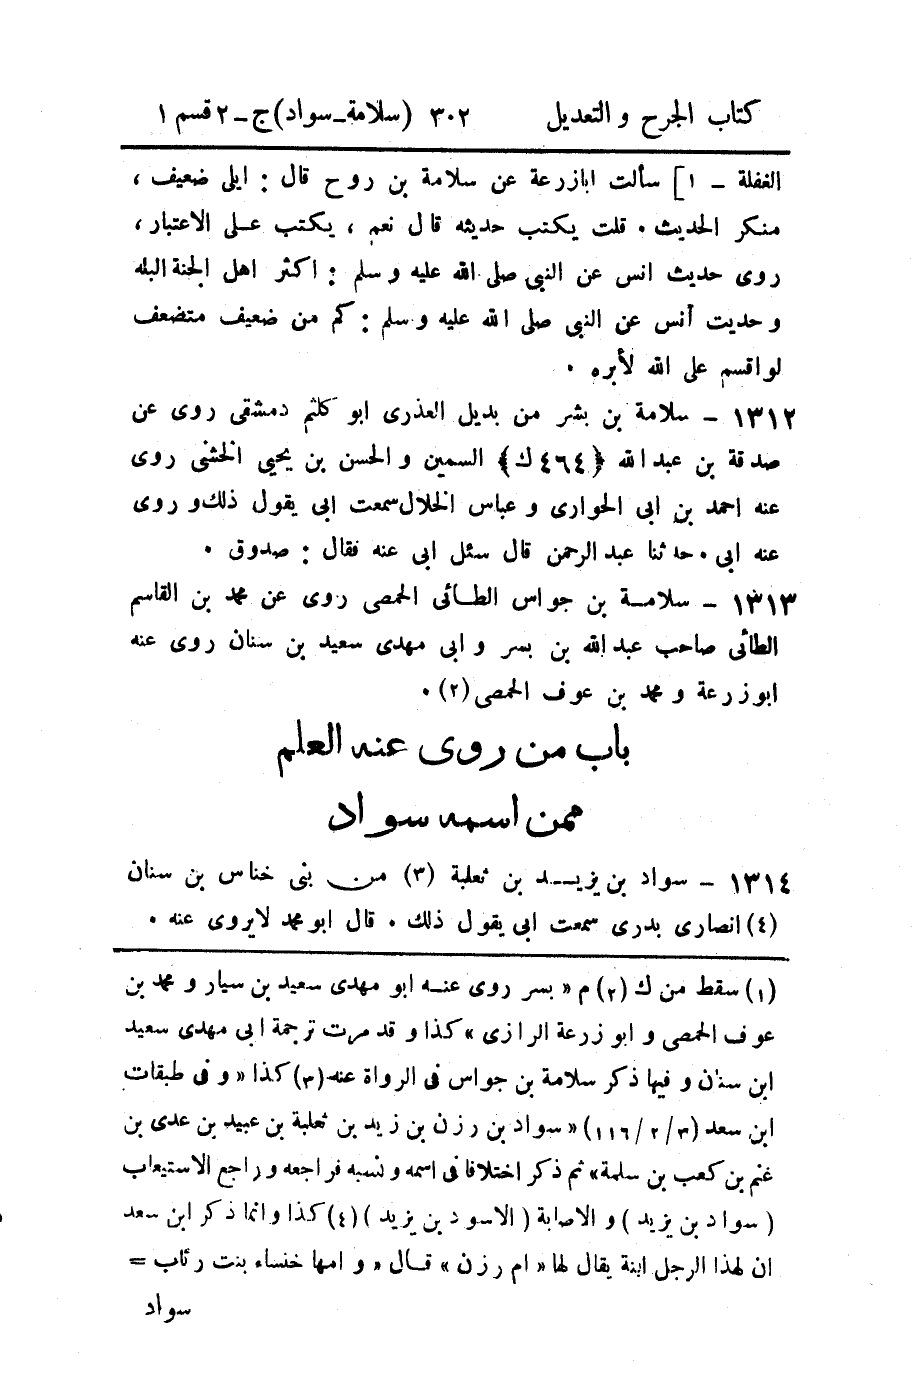 كتاب الجرح والتعديل ٣٠٢ (سلامة ـ سواد) ج ـ ٢ قسم ١
الغفلة ـ ١] سألت ابازرعة عن سلامة بن روح قال : ايلي ضعيف ،
منكر الحديث . قلت يكتب حديثه قال نعم ، يكتب على الاعتبار ،
روى حديث انس عن النبي صلى الله عليه وسلم : اكثر اهل الجنة البله
وحديث أنس عن النبي صلى الله عليه وسلم : كم من ضعيف متضعف
لو اقسم على الله لأبره .
١٣١٢ ـ سلامة بن بشر من بديل العذرى ابو كلثم دمشقى روى عن
صدقة بن عبد الله ﴿٤٦٤ك﴾ السمين والحسن بن يحيى الخشنى روى
عنه احمد بن ابى الحوارى وعباس الخلال سمعت ابى يقول ذلك وروى
عنه ابى . حدثنا عبد الرحمن قال سئل ابى عنه فقال : صدوق .
١٣١٣ ـ سلامة بن جواس الطائى الحمصى روى عن محمد بن القاسم
الطائى صاحب عبد الله بن بسر وابى مهدى سعيد بن سنان روى عنه
ابوزرعة ومحمد بن عوف الحمصى (٢) .
باب من روى عنه العلم
ممن اسمه سواد
١٣١٤ ـ سواد بن يزيد بن ثعلبة (٣) من بنى خناس بن سنان
(٤) انصارى بدرى سمعت ابى يقول ذلك . قال ابو محمد لا يروى عنه .
(١) سقط من ك (٢) م « بسر روى عنه ابو مهدى سعيد بن سيار ومحمد بن
عوف الحمصى وابو زرعة الرازى » كذا وقد مرت ترجمة ابى مهدى سعيد
ابن سنان وفيها ذكر سلامة بن جواس فى الرواة عنه (٣) كذا « وفى طبقات
ابن سعد (٣/٢/١١٦) « سواد بن رزن بن زيد بن ثعلبة بن عبيد بن عدى بن
غنم بن كعب بن سلمة » ثم ذكر اختلافا فى اسمه ونسبه فراجعه وراجع الاستيعاب
( سواد بن يزيد ) والاصابة ( الاسود بن يزيد ) (٤) كذا وانما ذكر ابن سعد
ان لهذا الرجل ابنة يقال لها « ام رزن » قال « وامها خنساء بنت رئاب =
سواد